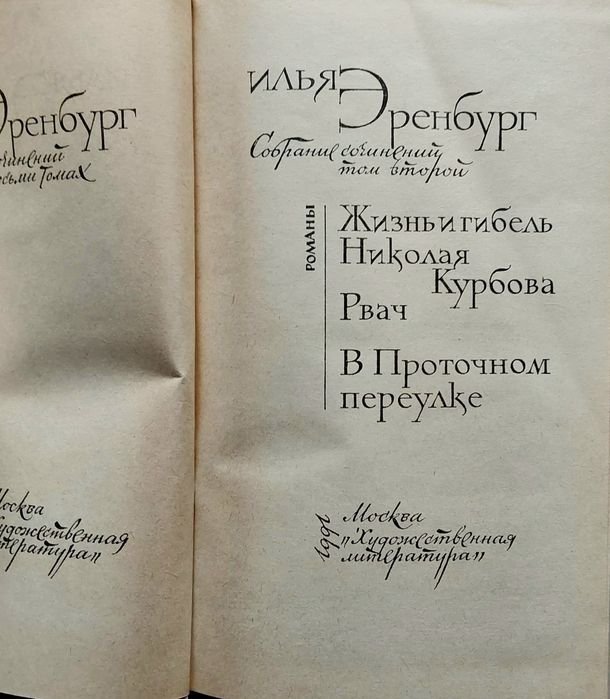 Эренбург
сочинений
восьми томах
Москва
Художественная
литература"
ИЛЬЯ
Эренбург
Собрание сочинений
том второй
РОМАНЫ
Жизнь и гибель
Николая
Курбова
Рвач
В Проточном
переулке
1991
Москва
"Художественная
литература"